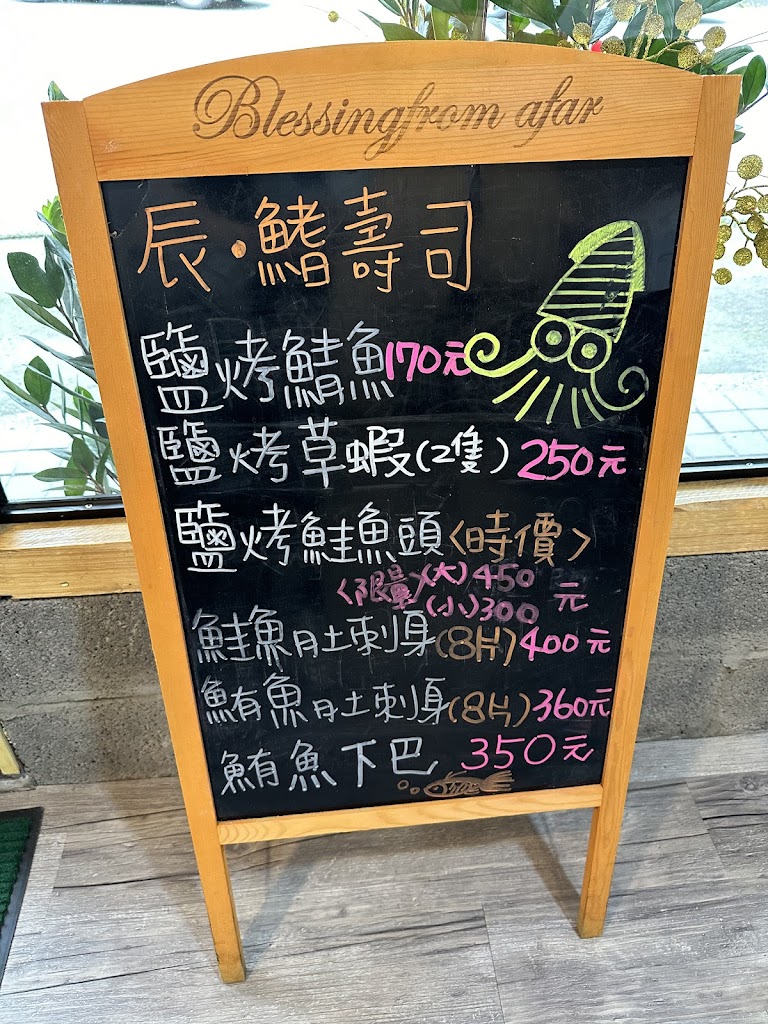 Blessingfrom afar
辰·鰭壽司
鹽烤鯖魚170元
鹽烤草蝦(2隻)250元
鹽烤鮭魚頭<時價>
<限量>(大)450元
(小)300
鮭魚肚刺身(8片)400元
鮪魚肚刺身(8片)360元
鮪魚下巴 350元